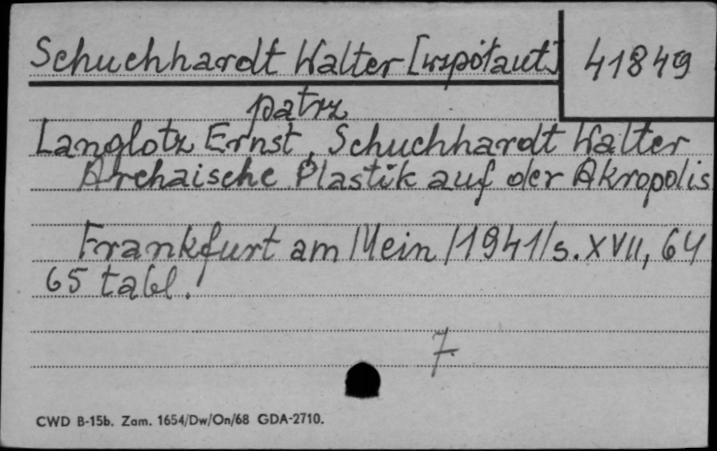 Schuchhardt Walter [współaut.]
41849
patrz
Langlotz Ernst, Schuchhardt Walter
Archaische Plastik auf der Akropolis
Frankfurt am Mein /1941/ s. XVII, 64
65 tabl.
7.
CWD B-15b. Zam. 1654/Dw/On/68 GDA-2710.